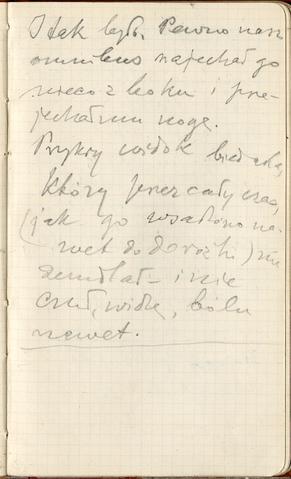 I tak było. Pewno nasz
omnibus najechał go
nieco z boku i prze-
jechał mu nogę.
Przykry widok biedaka,
który przez cały czas,
(jak go wsadzono na-
wet do dorożki) nie
zemdlał – i nie
czuł, widzę, bólu
nawet.